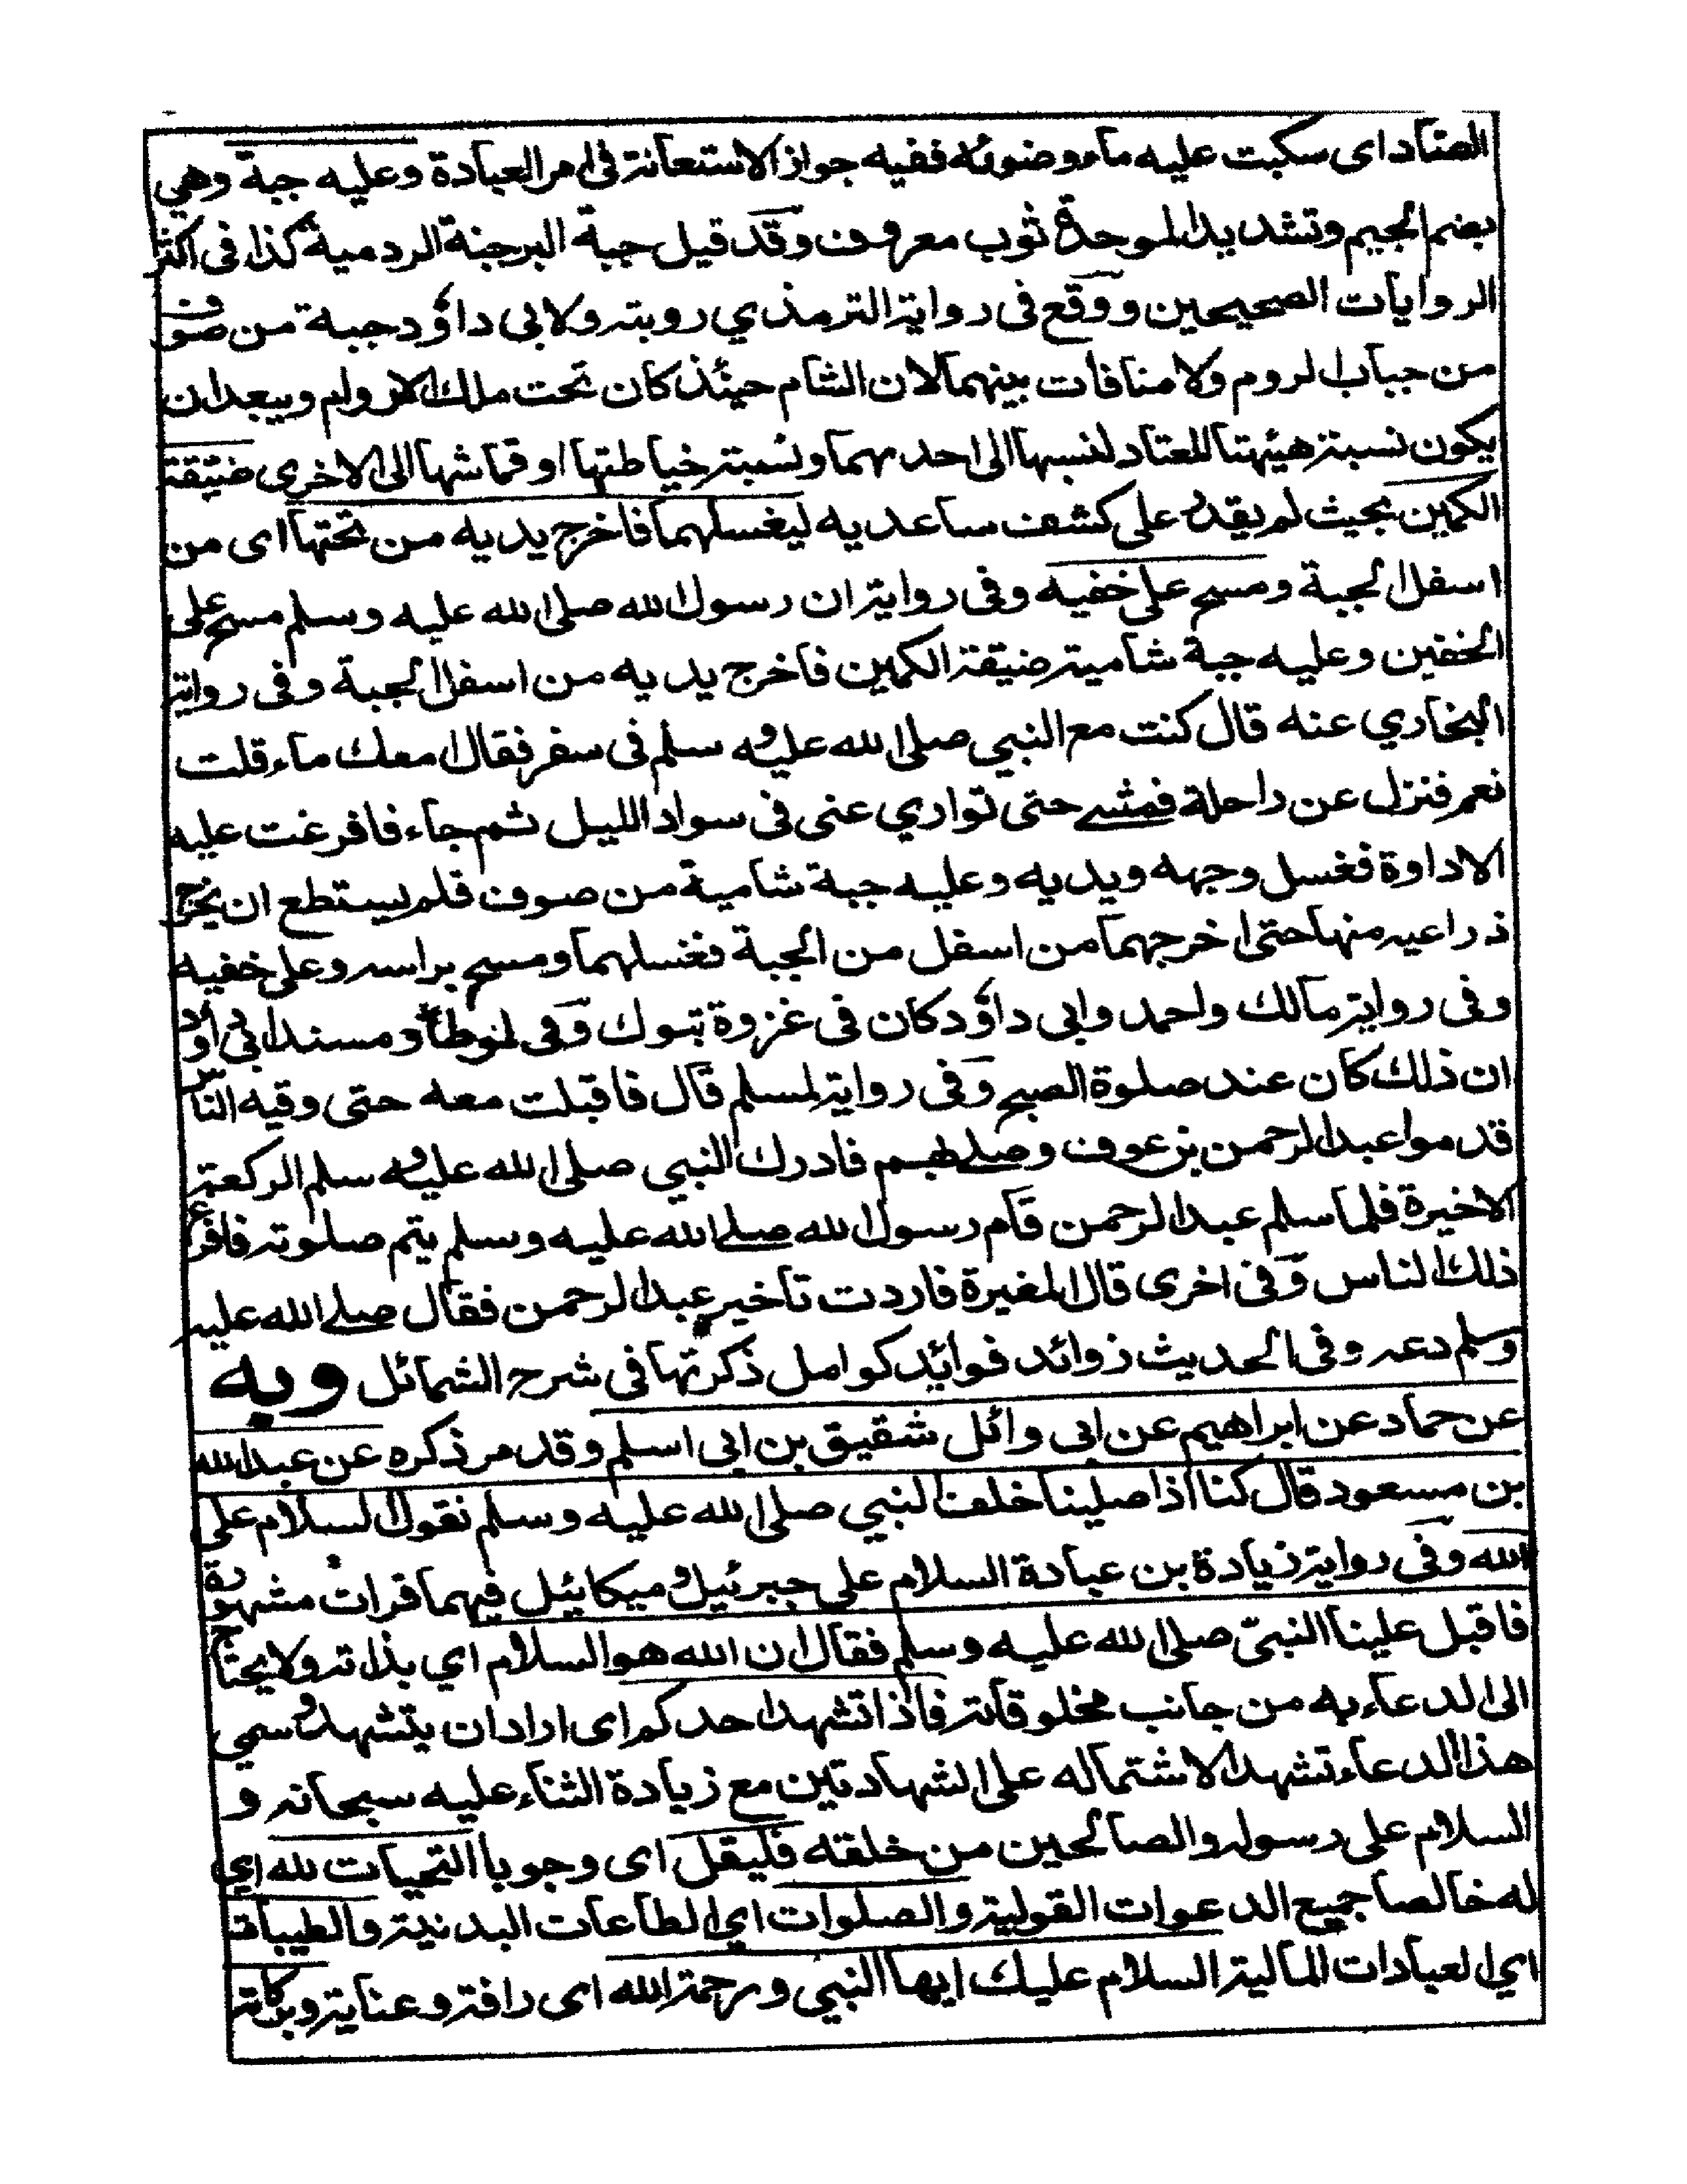 الصاد اى سكبت عليه ماء وضوئه ففيه جواز الاستعانة فى امر العبادة وعليه جبة وهي
بضم الجيم وتشديد الموحدة ثوب معروف وقد قيل جبة البرجنة الردمية كذا فى اكثر
الروايات الصحيحين ووقع فى رواية الترمذي رويته ولابى داؤد جبة من صوف
من جباب الروم ولا منافات بينهما لان الشام حينئذ كان تحت ملك الاروام ويبعد ان
يكون نسبة هيئتها للعتاد لنسبها الى احدهما ونسبة خياطتها او قماشها الى الاخرى ضيقة
الكمين بحيث لم يقدر على كشف ساعديه ليغسلهما فاخرج يديه من تحتها اى من
اسفل الجبة ومسح على خفيه وفى رواية ان رسول الله صلى الله عليه وسلم مسح على
الخفين وعليه جبة شامية ضيقة الكمين فاخرج يديه من اسفل الجبة وفى رواية
البخاري عنه قال كنت مع النبي صلى الله عليه وسلم فى سفر فقال امعك ماء قلت
نعم فنزل عن راحلة فمشے حتى تواري عنى فى سواد الليل ثم جاء فافرغت عليه
الاداوة فغسل وجهه ويديه وعليه جبة شامية من صوف فلم يستطع ان يخرج
ذراعيه منها حتى اخرجهما من اسفل من الجبة فغسلهما ومسح براسه وعلى خفيه
وفى رواية مالك واحمد وابى داؤد كان فى غزوة تبوك وفى لموطأ ومسند ابى داؤد
ان ذلك كان عند صلوة الصبح وفى رواية لمسلم قال فاقبلت معه حتى وقيه الناس
قدموا عبد الرحمن بن عوف وصلے بهم فادرك النبي صلى الله عليه وسلم الركعة
الاخيرة فلما سلم عبد الرحمن قام رسول الله صلے الله عليه وسلم يتم صلوته فافرغ
ذلك الناس وفى اخرى قال المغيرة فاردت تاخير عبد الرحمن فقال صلے الله عليه
وسلم دعه وفى الحديث زوائد فوائد كوامل ذكرتها فى شرح الشمائل وبه
عن حماد عن ابراهيم عن ابى وائل شقيق بن ابى اسلم وقد مر ذكره عن عبد الله
بن مسعود قال كنا اذا صلينا خلف النبي صلى الله عليه وسلم نقول السلام على
الله وفى رواية زيادة بن عبادة السلام على جبرئيل وميكائيل فيهما قرات مشهورة
فاقبل علينا النبى صلى الله عليه وسلم فقال ان الله هو السلام اي بذاته ولا يحتاج
الى الدعاء به من جانب مخلوقاته فاذا تشهد احدكم اى اراد ان يتشهد وسمي
هذا الدعاء تشهدا لاشتماله على الشهادتين مع زيادة الثناء عليه سبحانه و
السلام على رسوله والصالحين من خلقه فليقل اى وجوبا التحيات لله اي
له خالصا جميع الدعوات القولية والصلوات اي الطاعات البدنية والطيبات
اي العبادات المالية السلام عليك ايها النبي ورحمة الله اى رافة وعناية وبركاته